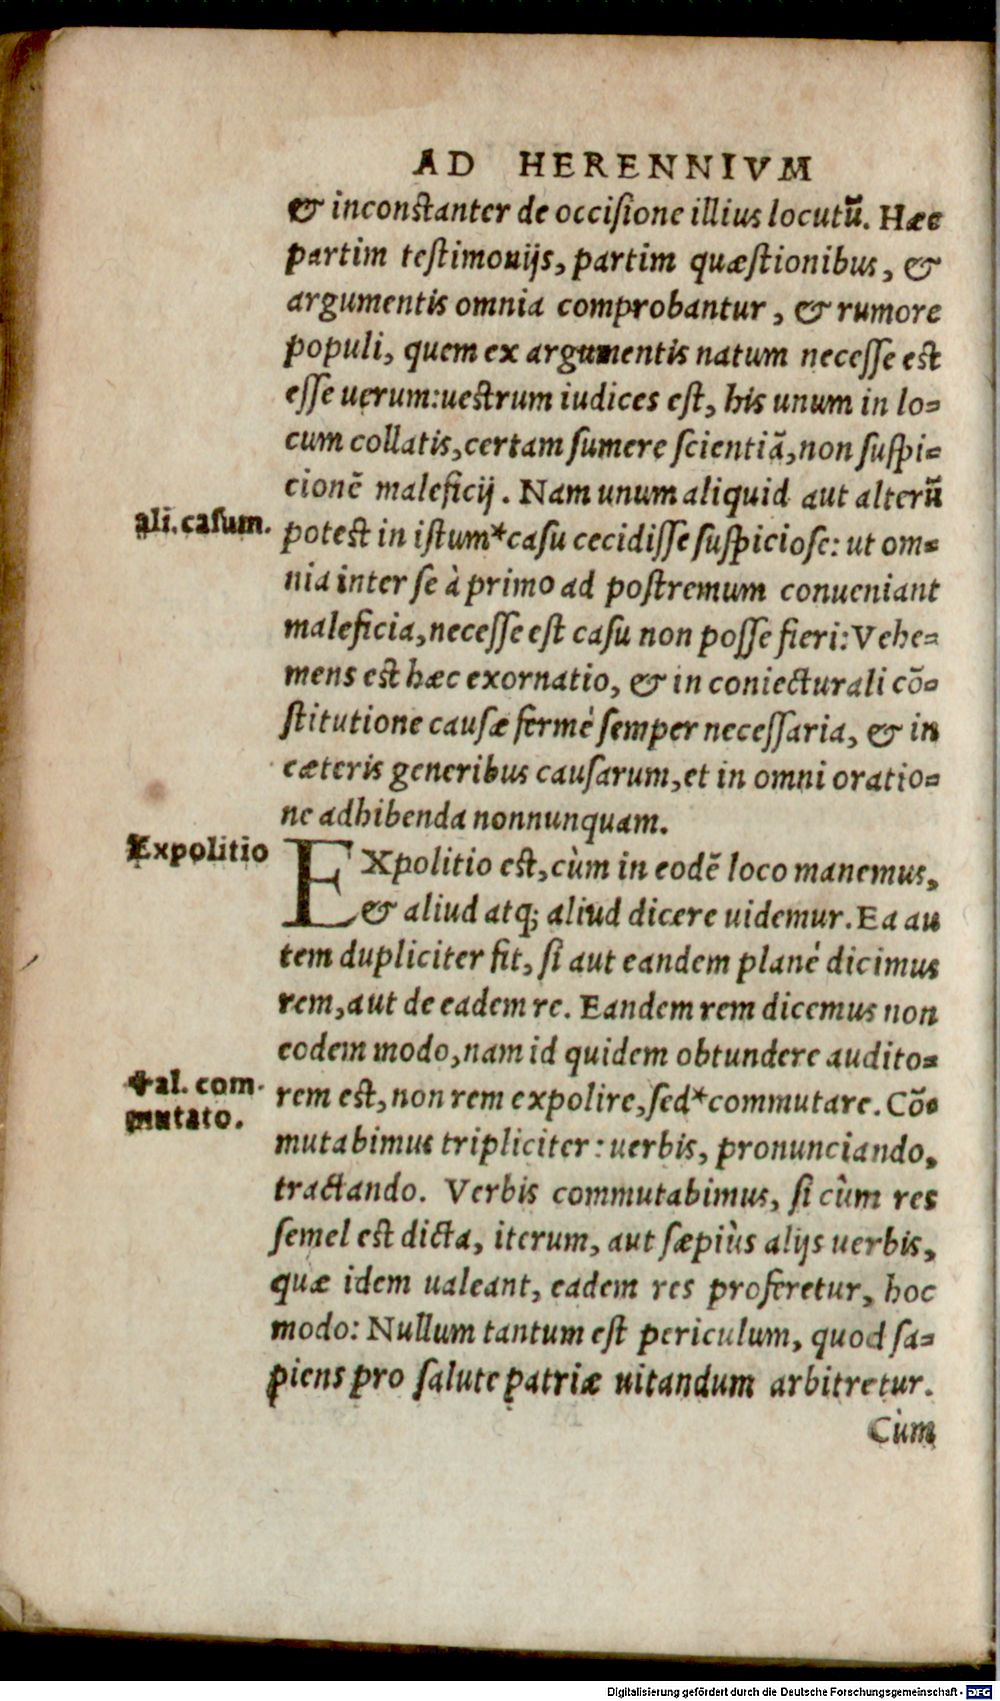 AD HERENNIVM
& inconstanter de occisione illius locutū. Hæc
partim testimonijs, partim quæstionibus, &
argumentis omnia comprobantur, & rumore
populi, quem ex argumentis natum necesse est
esse uerum: uestrum iudices est, his unum in lo=
cum collatis, certam sumere scientiā, non suspi=
cionē maleficij. Nam unum aliquid aut alterū
ali. casum.
potest in istum*casu cecidisse suspiciose: ut om=
nia inter se à primo ad postremum conueniant
maleficia, necesse est casu non posse fieri: Vehe=
mens est hæc exornatio, & in coniecturali cō=
stitutione causæ fermè semper necessaria, & in
cæteris generibus causarum, et in omni oratio=
ne adhibenda nonnunquam.
Expolitio
EXpolitio est, cùm in eodē loco manemus,
& aliud atq; aliud dicere uidemur. Ea au
tem dupliciter fit, si aut eandem planè dicimus
rem, aut de eadem re. Eandem rem dicemus non
eodem modo, nam id quidem obtundere audito=
✤al. com
mutato.
rem est, non rem expolire, sed*commutare. Cō=
mutabimus tripliciter: uerbis, pronunciando,
tractando. Verbis commutabimus, si cùm res
semel est dicta, iterum, aut sæpiùs alijs uerbis,
quæ idem ualeant, eadem res proferetur, hoc
modo: Nullum tantum est periculum, quod sa=
piens pro salute patriæ uitandum arbitretur.
Cùm
Digitalisierung gefördert durch die Deutsche Forschungsgemeinschaft - DFG